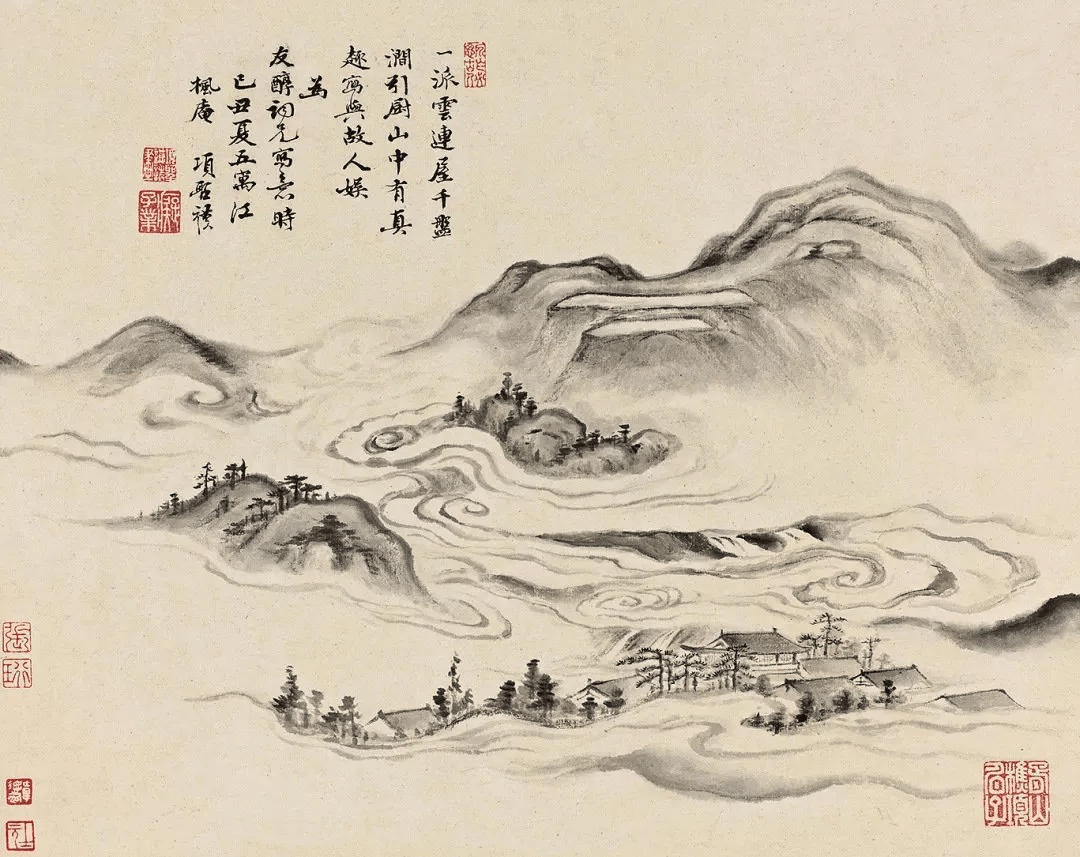 一派雲連屋千盤
澗引厨山中有真
趣寫與故人娛
為
友醇詞兄寫意時
己丑夏五寓江
楓庵 項聖謨
張
珩